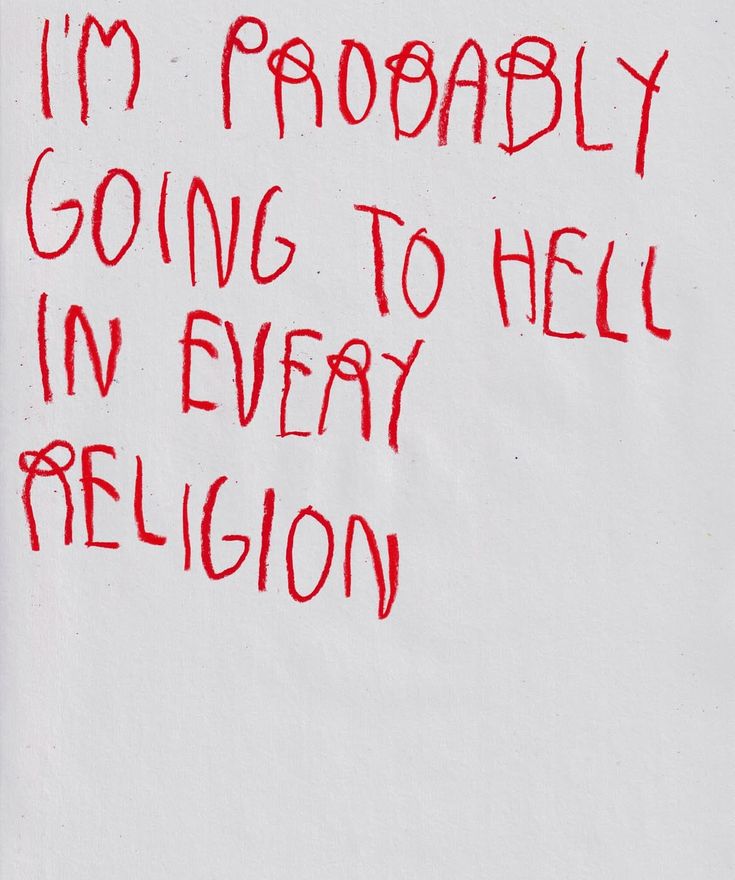 I'M PROBABLY
GOING TO HELL
IN EVERY
RELIGION